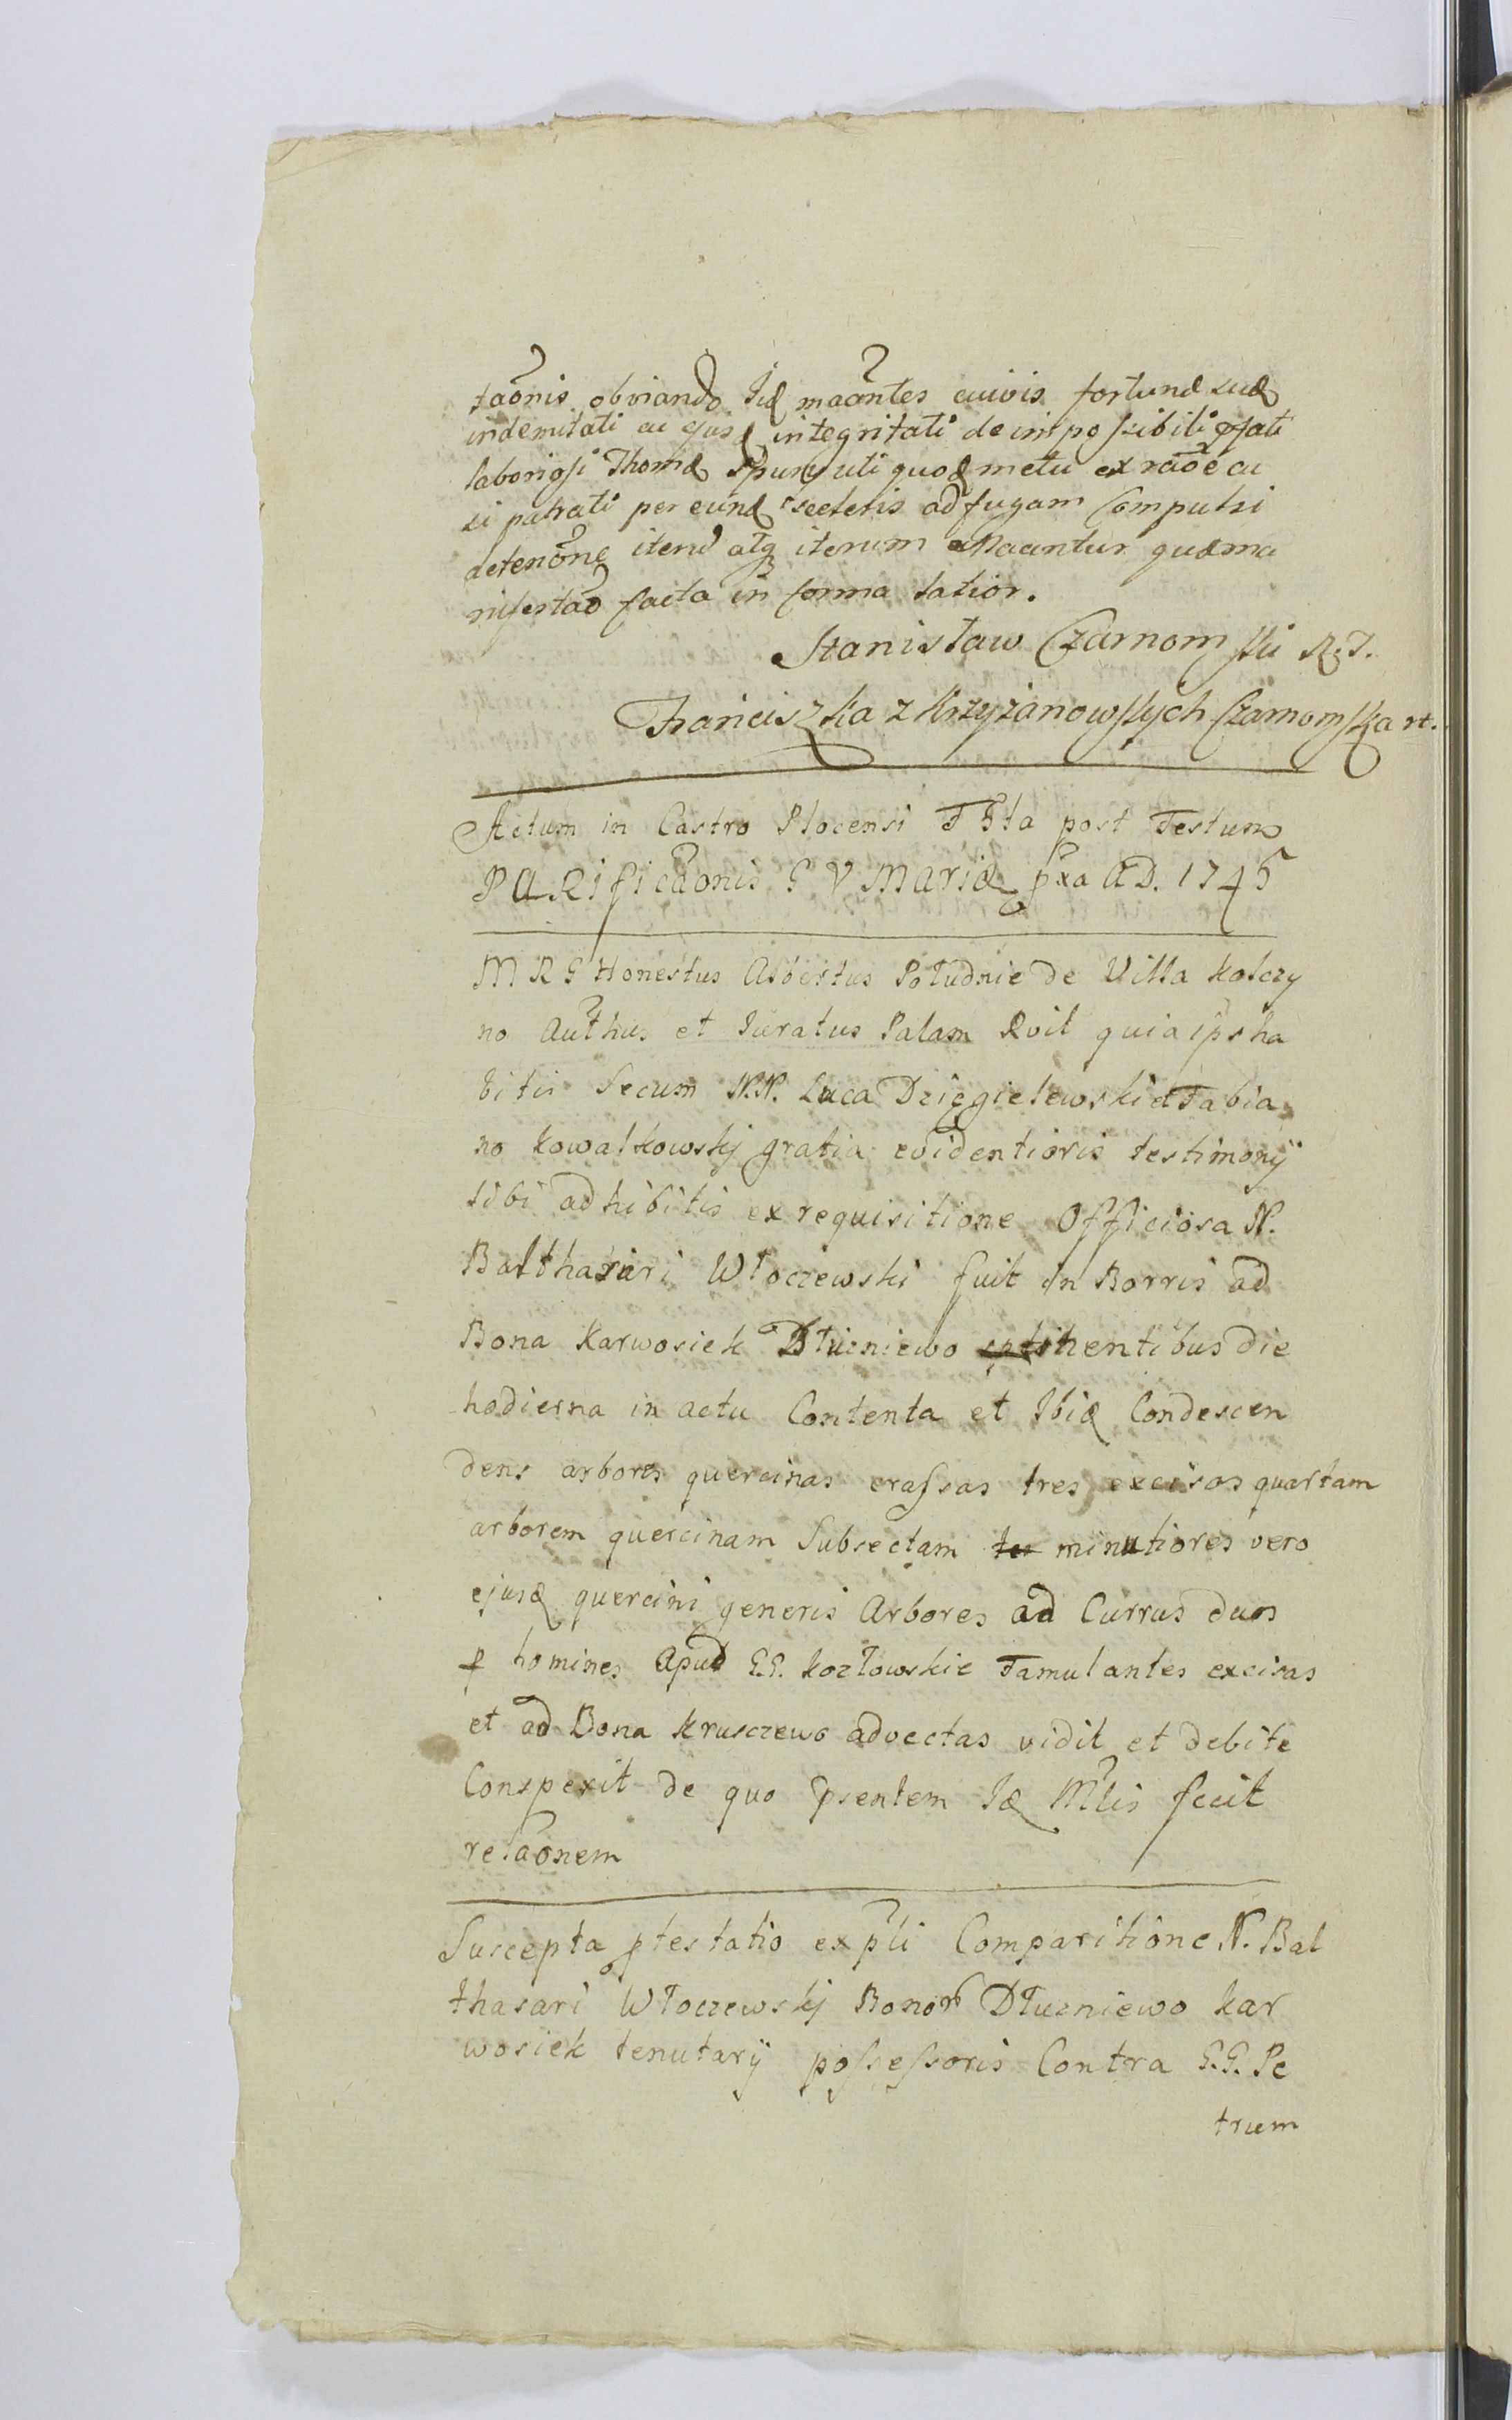 taonis obviando Iid maantes cuivis fortunæ suæ
indemnitati ac ejusd integritati de impossibili pfati
laboriosi Thomæ Spury uti quod metu ex raoe cu
si patrati per eund sceleris ad fugam Compulsi
detenone iterū atq iterum maantur quæ ma
nifestao facta in forma latior.
Stanisław Czarnomski R.T.
Franciszka z Krzyżanowskych Czarnomska rt.
Actum in Castro Plocensi F 5ta post Festum
PURificaonis B V Mariæ pxa AD. 1745
M R G Honestus Albertus Południe de Villa Kolczy
no Authus et Iuratus Palam Rvit quia ips ha
bitis Secum N.N. Luca Dzięgielewski et Fabia
no Kowalkowskj gratia evidentioris testimonÿ
sibi adhibitis ex requisitione Officiosa N.
Balthasari Włoczewski fuit in Borris ad
Bona Karwosiek Dłuzniewo sptinentibus Die
hodierna in actu Contenta et Ibid Condescen
dens arbores quercinas crassas tres excisas quartam
arborem quercinam Subsectam tu minutiores vero
ejusd quercini generis Arbores ad Currus duos
p homines Apud G.G. Kozłowskie Famulantes excisas
et ad Bona Krusczewo advectas vidit et debite
Conspexit de quo Psentem Id Mlis fecit
relaonem
Suscepta ptestatio expli Comparitione N. Bal
thasari Włoczewskj Bonor Dłuzniewo Kar
wosiek tenutarÿ possessoris Contra G.G. Pe
trum